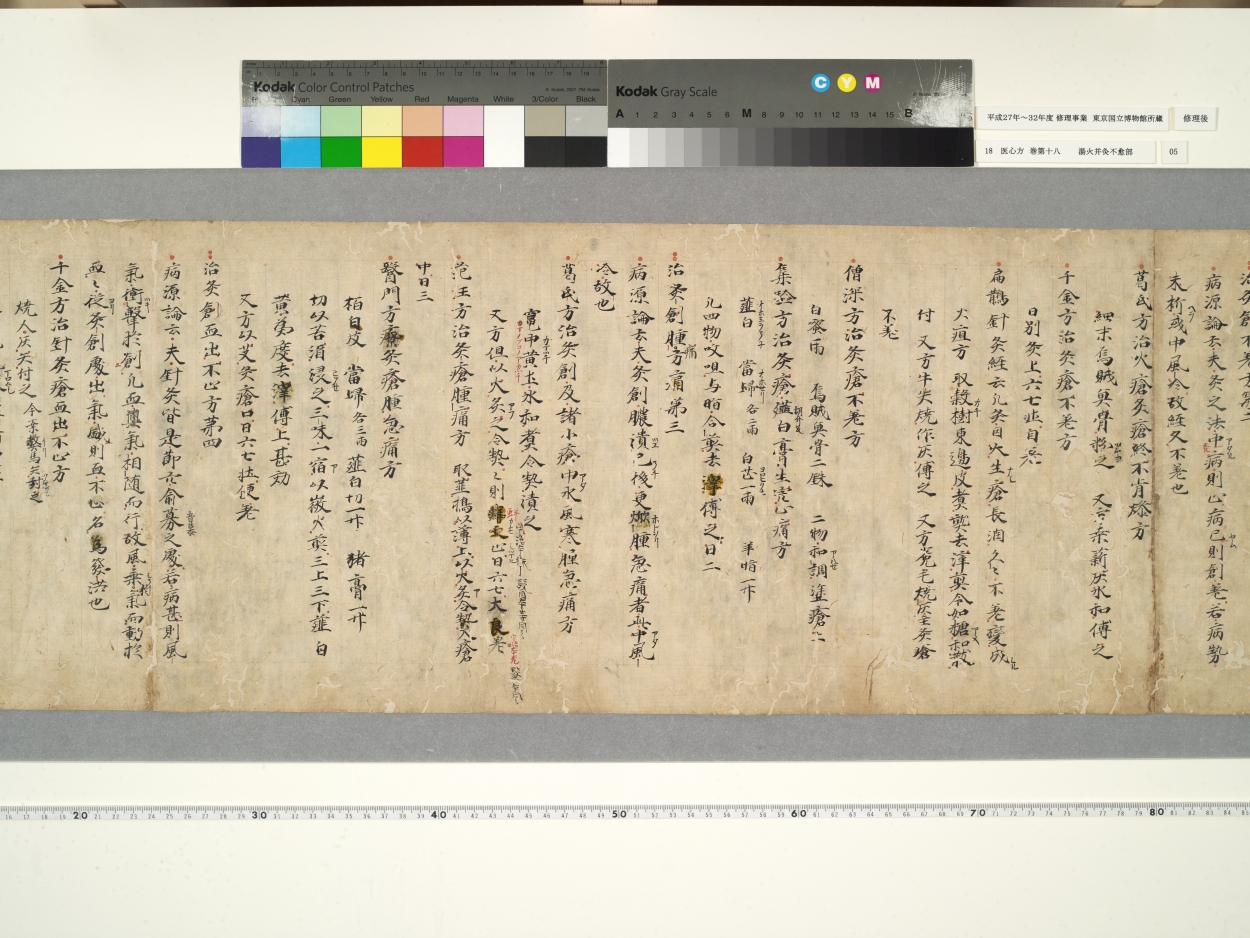 Kodak Color Control Patches
Cyan Green Yellow Red Magenta White 3/Color Black
Kodak Gray Scale
C Y M
A 1 2 3 4 5 6 M 8 9 10 11 12 13 14 15 B
平成27年～32年度 修理事業 東京国立博物館所蔵
修理後
18 医心方 巻第十八 湯火并灸不愈部
05
病源論云夫灸之法中病則止病已則創差若病勢
未析或中風冷故経久不差也
葛氏方治火瘡灸瘡終不肯燥方
細末烏賊魚骨粉之 又云桒薪灰水和傅之
千金方治灸瘡不差方
日別灸上六七壮自差
扁鵲針灸経云凡灸因火生瘡長潤久〻不差變成
火疽方 取穀樹東邊皮煮熟去滓煎令如糖和散
付 又方牛矢焼作灰傅之 又方菟毛焼灰塗灸瘡
不差
僧深方治灸瘡不差方
白蜜一兩 烏賊魚骨二銖 二物和調塗瘡上
集驗方治灸瘡薤白膏生完止痛方
薤白 當歸各二兩 白芷一兩 羊脂一升
凡四物㕮咀与脂合煎去滓傅之日二
治灸創腫痛方第三
病源論云夫灸創膿潰已後更焮腫急痛者此中風
冷故也
葛氏方治灸創及諸小瘡中水風寒腫急痛方
竃中黄土水和煮令熱漬之
又方但以火灸之令熱〻則 止日六七大良差
范汪方治灸瘡腫痛方 取薤搗以薄上以火灸令熱入瘡
中日三
醫門方療灸瘡腫急痛方
栢白皮 當歸各三兩 薤白切一升 猪膏一升
切以苦酒浸之三味一宿以微火煎三上三下薤白
黄為度去滓傅上甚効
又方以艾灸瘡口日六七壮便差
治灸創血出不止方第四
病源論云夫針灸皆是節穴俞募之處若病甚則風
氣衝擊於創凡血與氣相随而行故風乗氣而動於
血〻従灸創處出氣盛則血不止名為發洪也
千金方治針灸瘡血出不止方
焼人矢灰付之
10 20 30 40 50 60 70 80